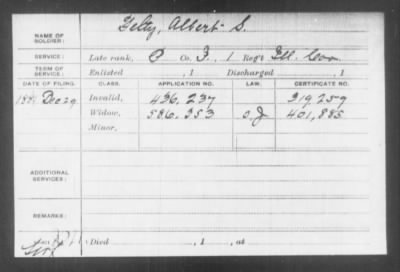 Felty, Albert S.
NAME OF SOLDIER:
SERVICE: Late rank, P Co. F, 1 Reg't Ill. Cav.
TERM OF SERVICE: Enlisted , 1 Discharged , 1
DATE OF FILING. CLASS. APPLICATION NO. LAW. CERTIFICATE NO.
1881 Dec 29 Invalid, 436.237 319259
Widow, 586.353 O.J 401,885
Minor,
ADDITIONAL SERVICES:
REMARKS:
Died , 1 , at